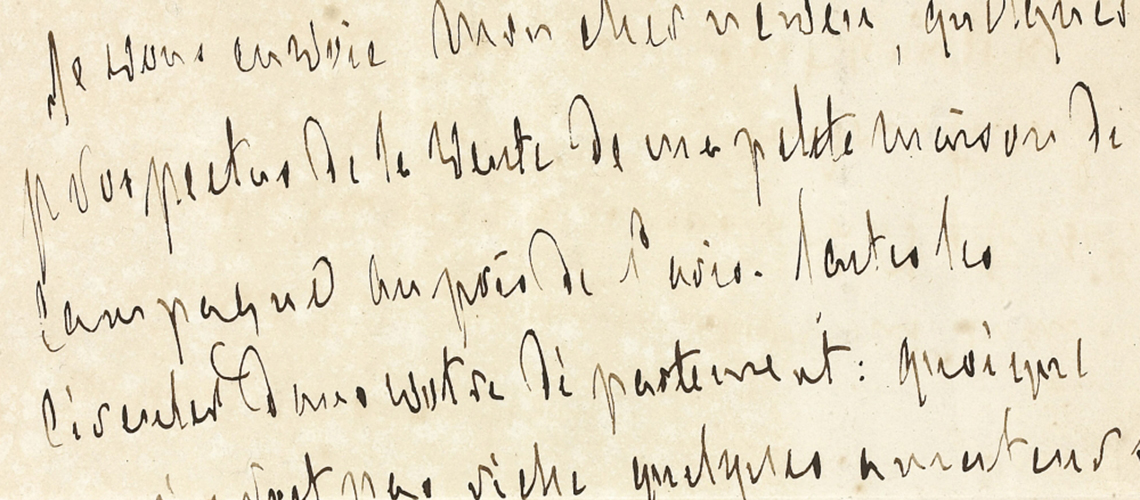 Je vous envoie mon cher neveu, quelques
prospectus de la vente de ma petite maison de
campagne auprès de Paris. faites les
circuler dans votre département: quoique
pas riche quelques amateurs